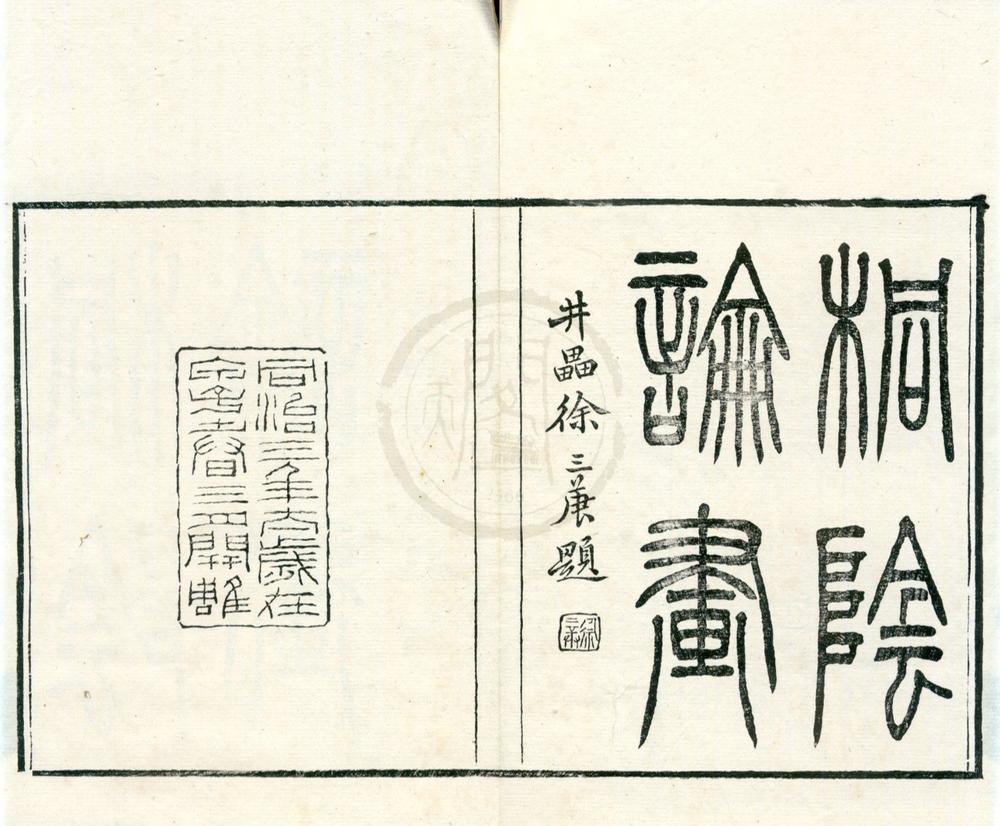 桐陰
論畫
井罍徐三庚題
同治三年太歲在
甲子春三月開雕